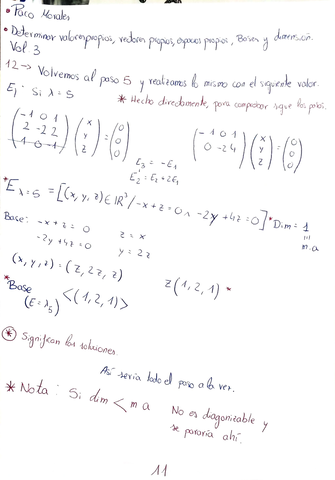 • Paco Morales
• Determinar valores propios, vectores propios, espacios propios, Bases y dimensión.
Vol 3
12 → Volvemos al paso 5 y realizamos lo mismo con el siguiente valor.
E₁: Si λ = 5
* Hecho directamente, para comprobar sigue los pasos.
(-1 0 1 / 2 -2 2 / 1 0 -1) (x / y / z) = (0 / 0 / 0)
(-1 0 1 / 0 -2 4) (x / y / z) = (0 / 0 / 0)
E₃ = -E₁
E₂' = E₂ + 2E₁
* E λ=5 = [(x, y, z) ∈ ℝ³ / -x + z = 0 ∧ -2y + 4z = 0] * Dim = 1
m.a
Base: -x + z = 0 z = x
-2y + 4z = 0 y = 2z
(x, y, z) = (z, 2z, z) z(1, 2, 1) *
* Base <(1, 2, 1)>
(E = λ₅)
* Significan las soluciones.
Así sería todo el paso a la vez.
* Nota: Si dim < m a No es diagonizable y
se pararía ahí.
11